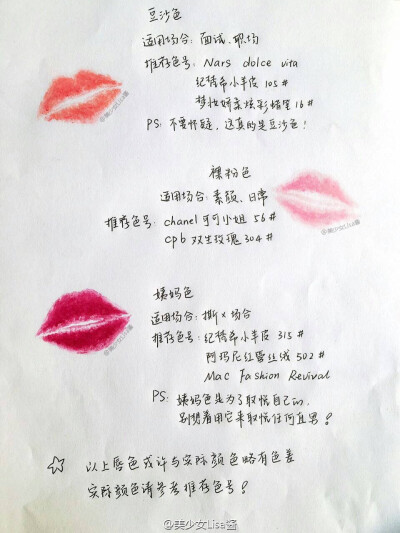 豆沙色
适用场合:面试、职场
推荐色号:Nars dolce vita
纪梵希小羊皮 105#
梦妆娇柔炫彩唇笔 16#
PS:不要怀疑,这真的是豆沙色!
@美少女Lisa酱
裸粉色
适用场合:素颜、日常
推荐色号:chanel可可小姐 56#
cpb 双生玫瑰 304#
@美少女Lisa酱
姨妈色
适用场合:撕×场合
推荐色号:纪梵希小羊皮 315#
阿玛尼红管丝绒 502#
Mac Fashion Revival
PS:姨妈色是为了取悦自己的,
别想着用它来取悦任何直男!
@美少女Lisa酱
☆ 以上唇色或许与实际颜色略有色差
实际颜色请参考推荐色号!
@美少女Lisa酱